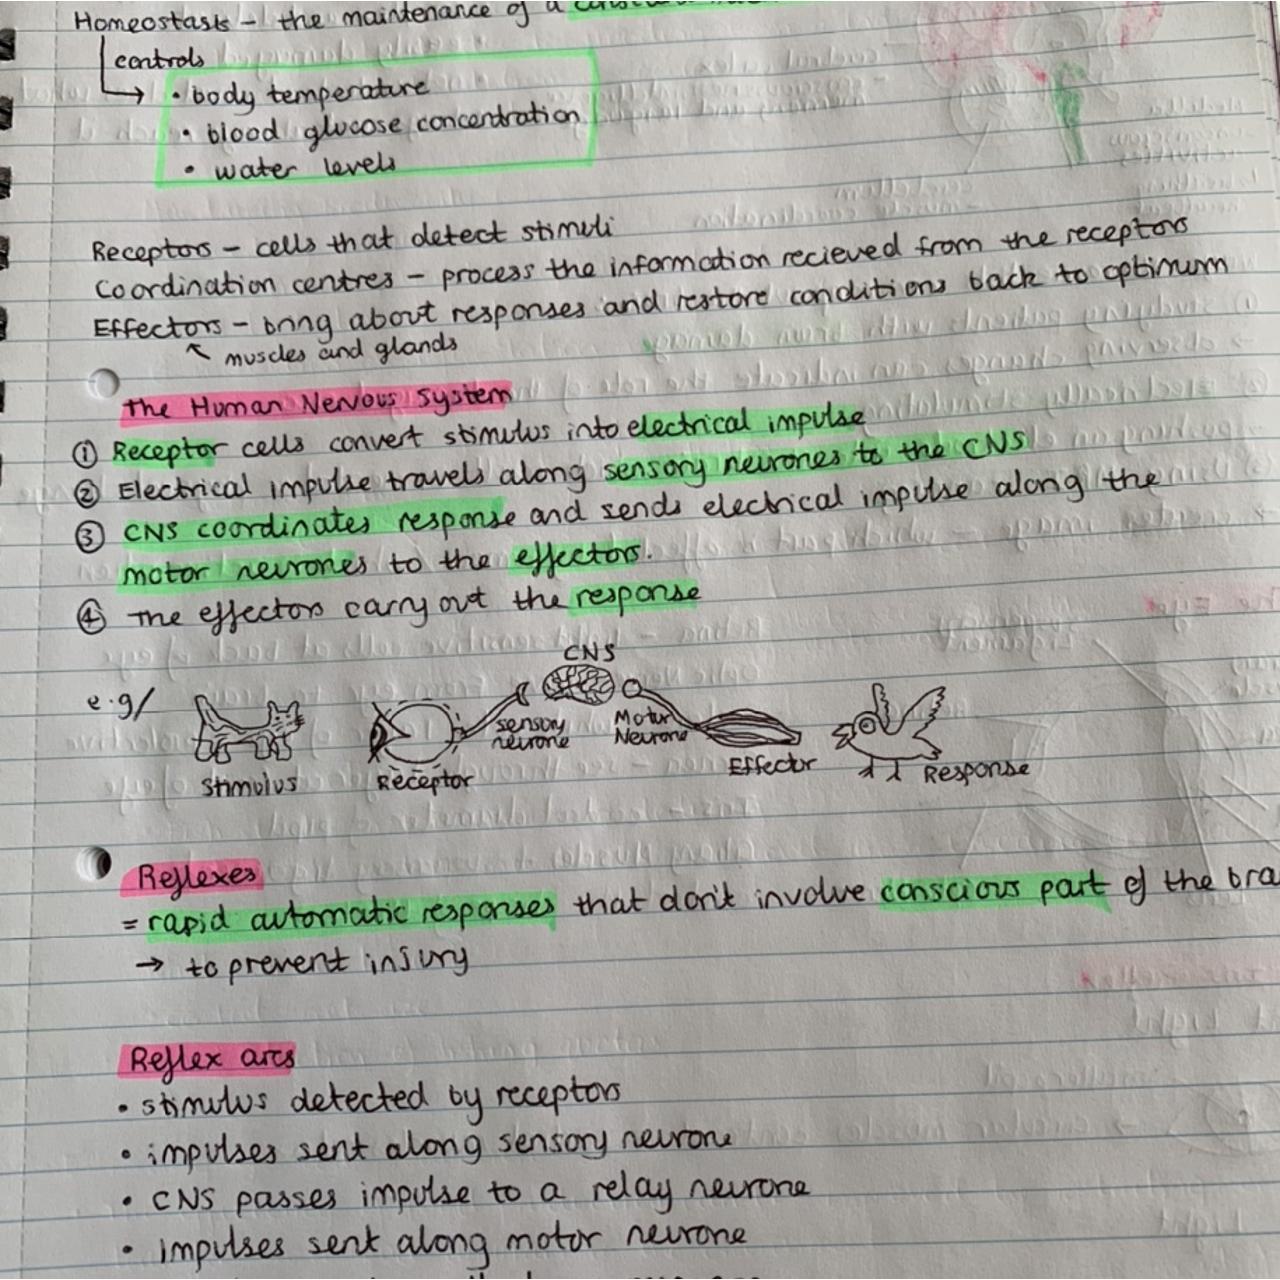 Homeostasis – the maintenance of a
controls
→ • body temperature
• blood glucose concentration
• water levels
Receptors – cells that detect stimuli
Coordination centres – process the information recieved from the receptors
Effectors – bring about responses and restore conditions back to optimum
muscles and glands
The Human Nervous System
① Receptor cells convert stimulus into electrical impulse
② Electrical impulse travels along sensory neurones to the CNS
③ CNS coordinates response and sends electrical impulse along the
motor neurones to the effectors.
④ The effectors carry out the response
CNS
e.g/
sensory
neurone
Motor
Neurone
Stimulus
Receptor
Effector
Response
Reflexes
= rapid automatic responses that don't involve conscious part of the bra
→ to prevent injury
Reflex arcs
• stimulus detected by receptors
• impulses sent along sensory neurone
• CNS passes impulse to a relay neurone
• impulses sent along motor neurone